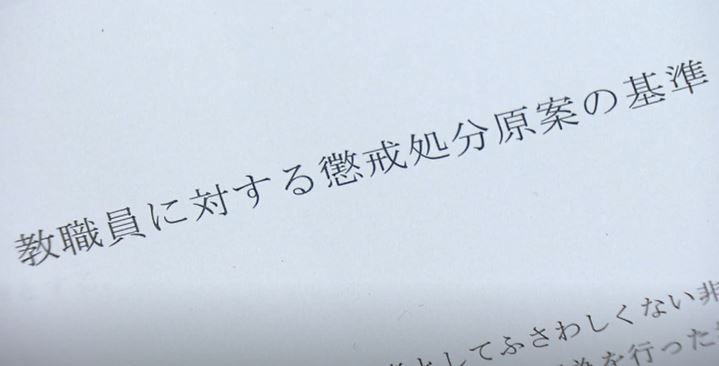 教職員に対する懲戒処分原案の基準
としてふさわしくない非
を行った